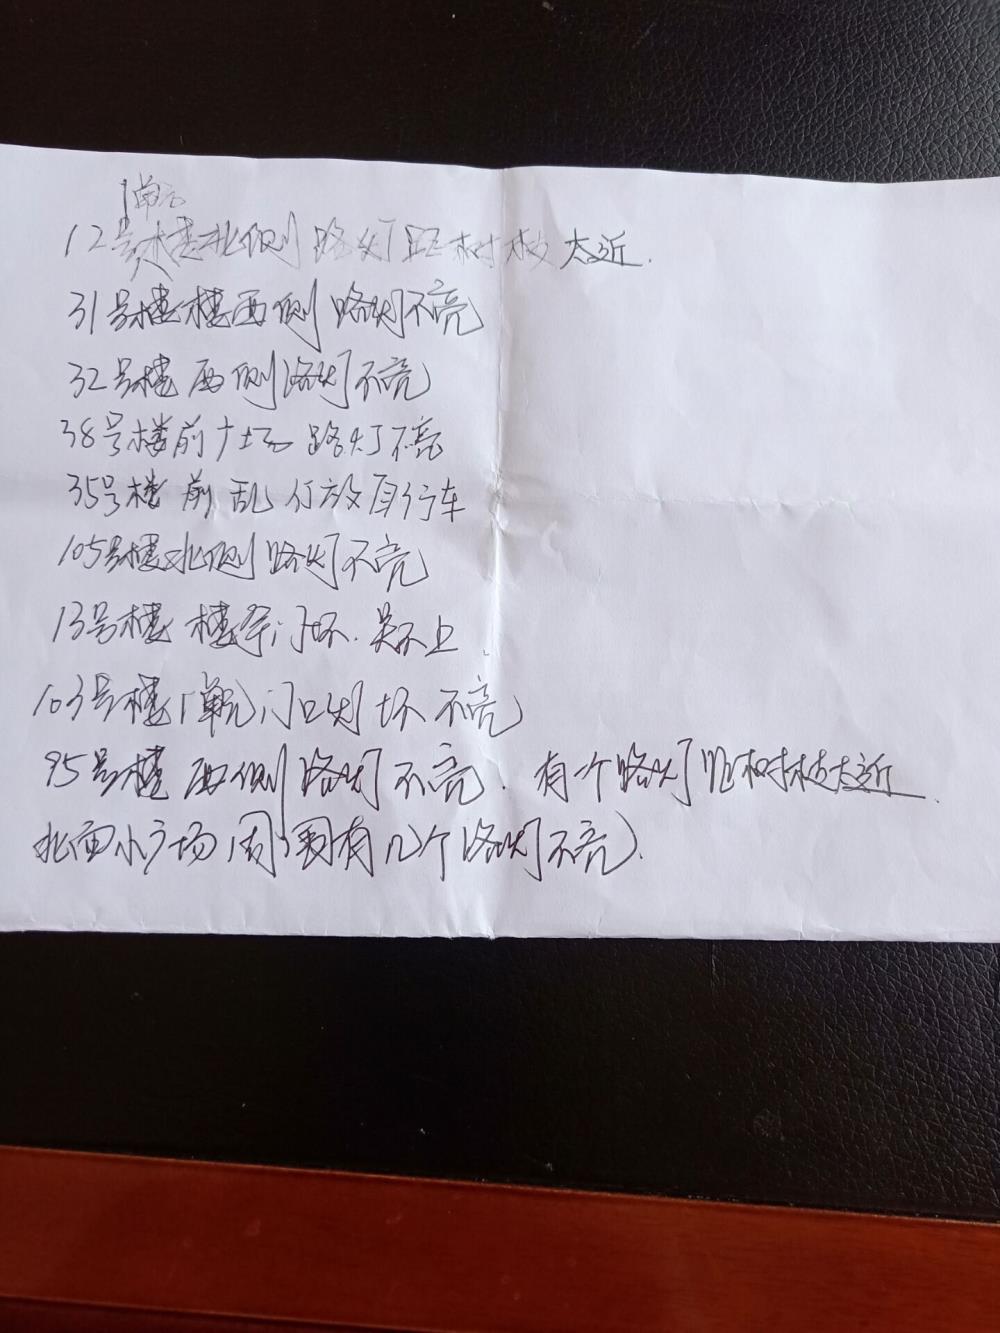 1单元
12号楼北侧路灯距树枝太近.
31号楼楼西侧路灯不亮
32号楼西侧路灯不亮
38号楼前广场路灯不亮
35号楼前乱停放自行车
105号楼北侧路灯不亮
13号楼 楼宇门坏.关不上.
103号楼1单元门口灯坏不亮
95号楼西侧路灯不亮.有个路灯距树枝太近.
北面小广场周围有几个路灯不亮.